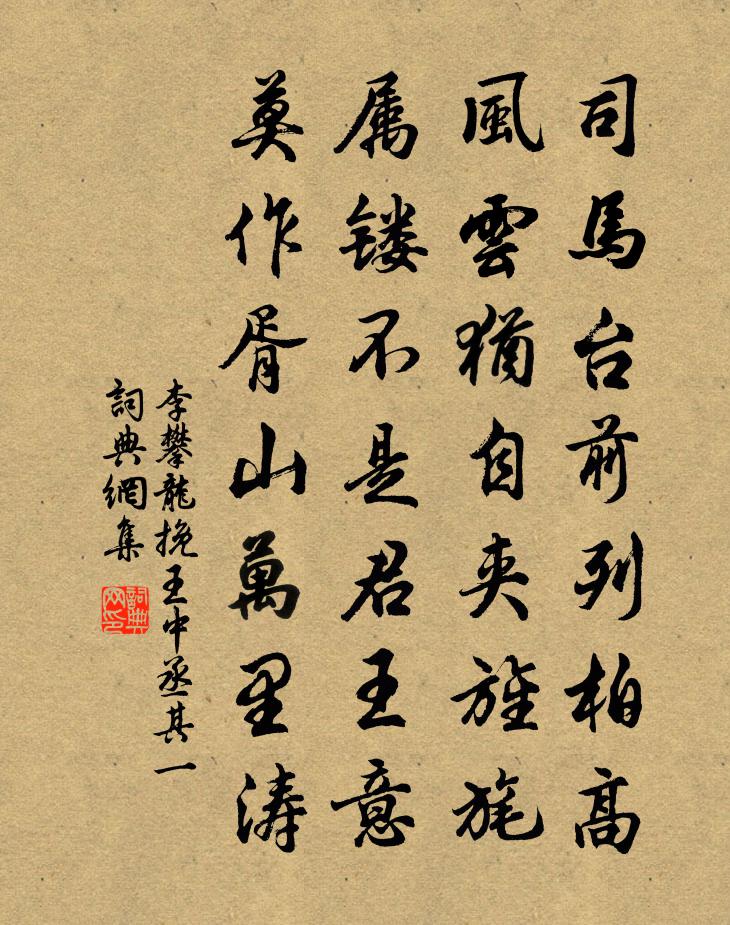 司馬台前列柏高
風雲猶自夾旌旄
属镂不是君王意
莫作胥山萬里涛
李攀龍挽王中丞其一
詞典網集
詞典网印